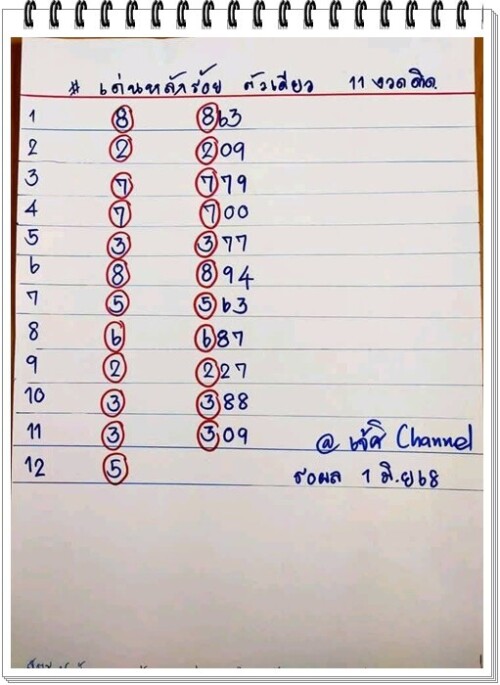 # เด่นหลักร้อย ตัวเดียว 11 งวดติด
1 8 863
2 2 209
3 7 779
4 7 700
5 3 377
6 8 894
7 5 563
8 6 687
9 2 227
10 3 388
11 3 309
@ เจ๊ศิ Channel
12 5
รอผล 1 มิ.ย 68